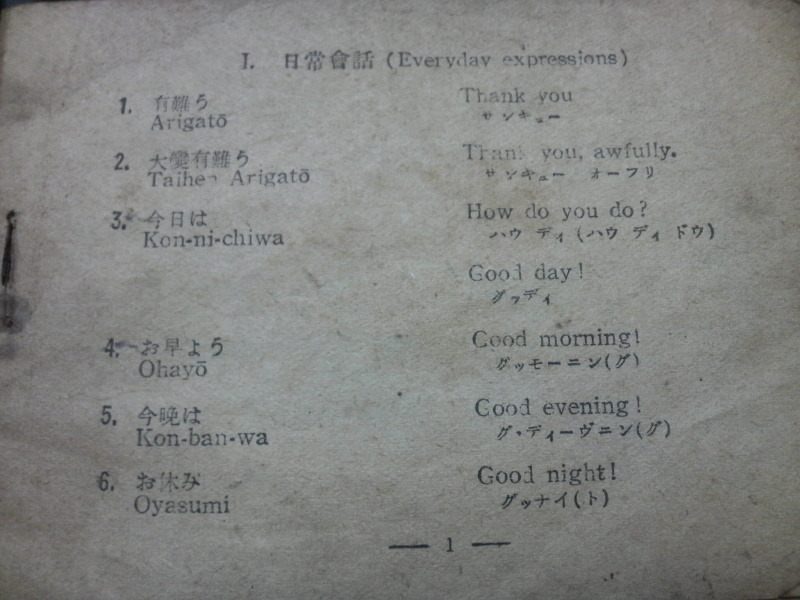 I. 日常會話 (Everyday expressions)
1. 有難う Thank you
Arigatō サンキュー
2. 大變有難う Thank you, awfully.
Taihen Arigatō サンキュー オーフリ
3. 今日は How do you do?
Kon-ni-chiwa ハウ ディ (ハウ ディ ドウ)
Good day!
グッディ
4. お早よう Good morning!
Ohayō グッモーニン(グ)
5. 今晩は Good evening!
Kon-ban-wa グッディーヴニン(グ)
6. お休み Good night!
Oyasumi グッナイ(ト)
— 1 —